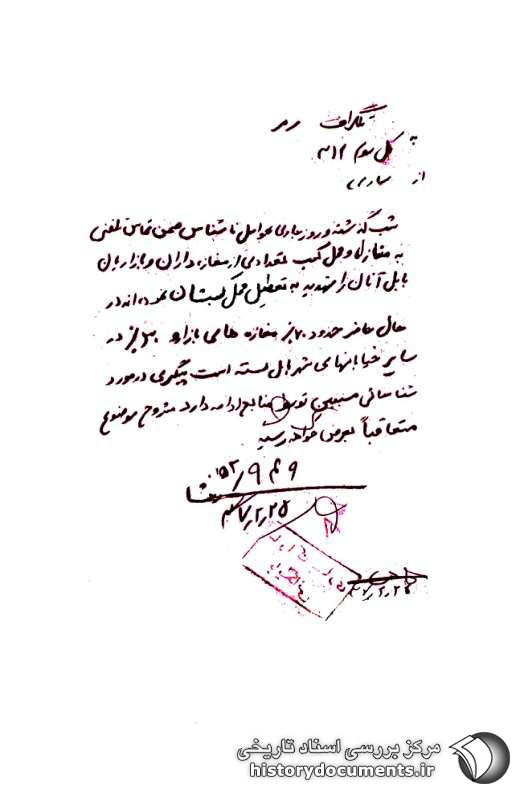 تلگراف رمز
به کل سوم ۳۱۲
از ساری
شب گذشته و روز جاری عوامل ناشناس ضمن تماس تلفنی
به منازل و محل کسب تعدادی از مغازه داران و بازاریان
بابل آنان را تهدید به تعطیل محل کسبشان نموده‌اند در
حال حاضر حدود ۷۰٪ مغازه های بازار و ۳۰٪ در
سایر خیابانهای شهر بابل بسته است پیگیری در مورد
شناسائی مسببین توسط منابع ادامه دارد مشروح موضوع
متعاقباً بعرض خواهد رسید
۴۷/۲/۲۵
مرکز بررسی اسناد تاریخی
historydocuments.ir